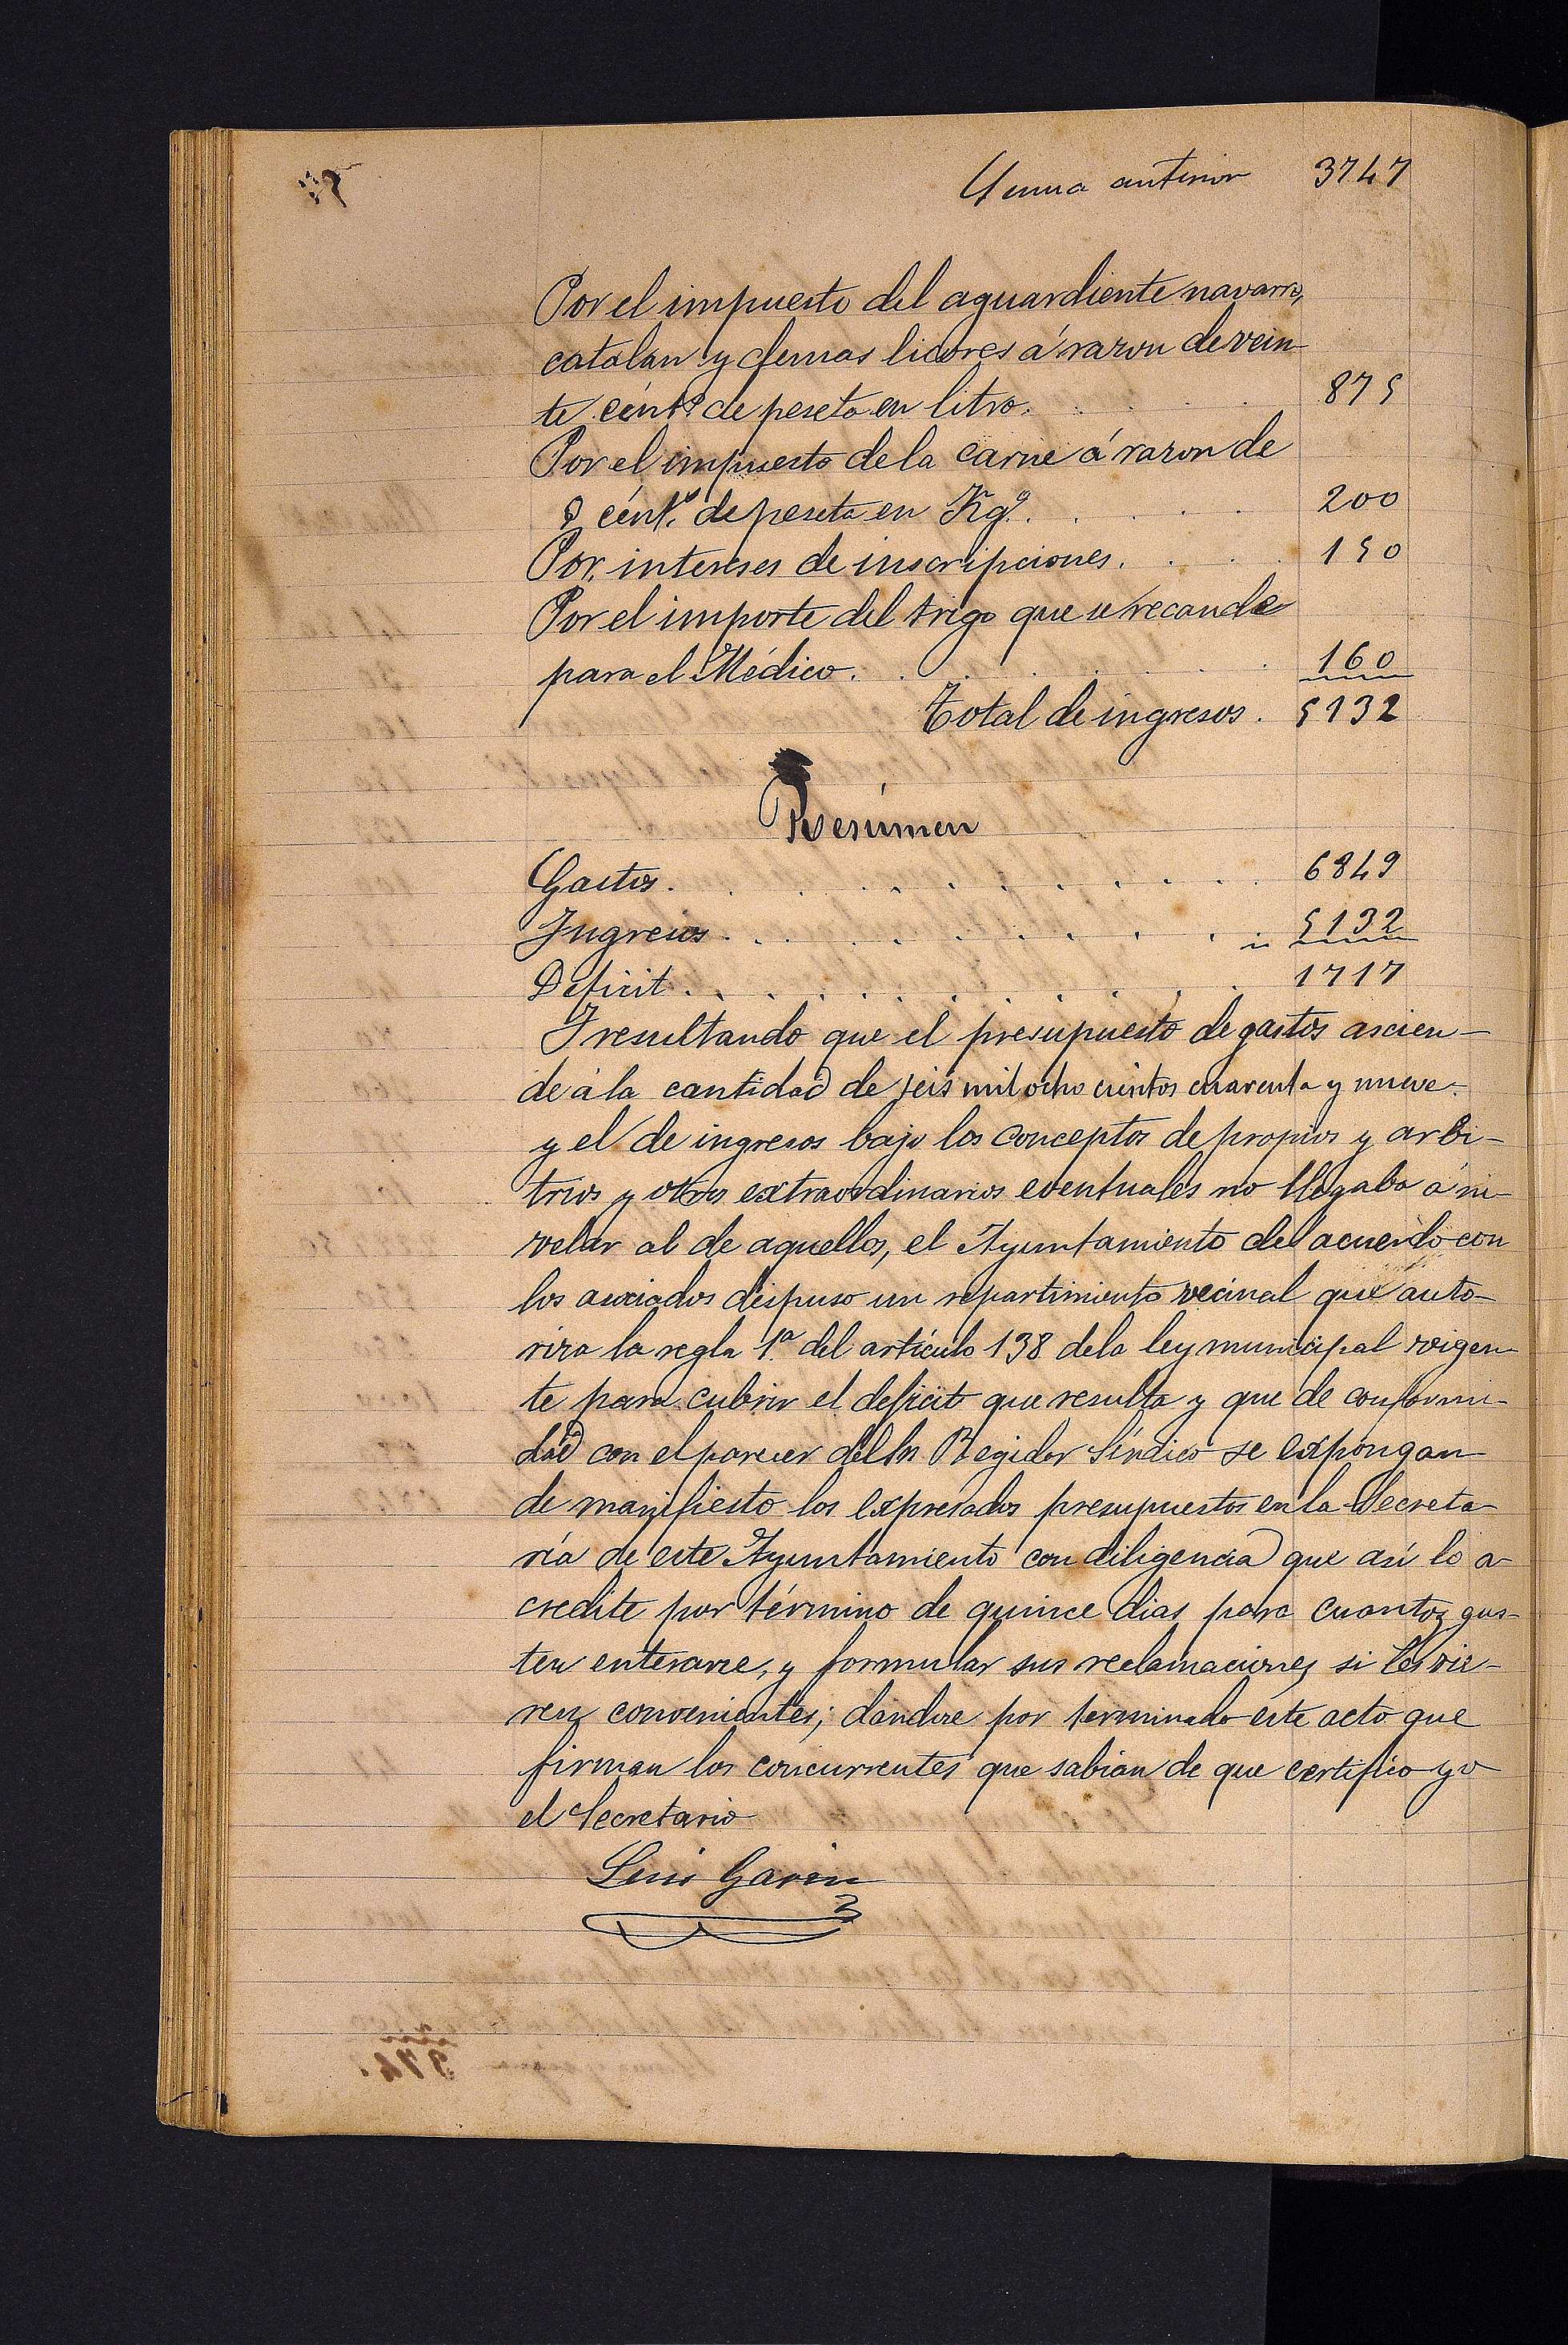 Suma anterior 3747
Por el impuesto del aguardiente navarro,
catalan y demas licores á razon de vein-
te cént.s de peseta en litro. 875
Por el impuesto de la carne á razon de
8 cént.s de peseta en Kg.º 200
Por intereses de inscripciones. 150
Por el importe del trigo que se recauda
para el Médico. 160
Total de ingresos. 5132
Resúmen
Gastos. 6849
Ingresos. 5132
Deficit. 1717
I resultando que el presupuesto de gastos ascien-
de á la cantidad de seis mil ocho cientos cuarenta y nueve.
y el de ingresos bajo los conceptos de propios y arbi-
trios y otros extraordinarios eventuales no llegaba á ni-
velar al de aquellos, el Ayuntamiento de acuerdo con
los asociados dispuso un repartimiento vecinal que auto-
riza la regla 1.ª del artículo 138 de la ley municipal vigen-
te para cubrir el deficit que resulta y que de conformi-
dad con el parecer del Sr Regidor Síndico se expongan
de manifiesto los expresados presupuestos en la Secreta-
ría de este Ayuntamiento con diligencia que así lo a-
credite por término de quince dias para cuantos gus-
ten enterarse, y formular sus reclamaciones si les vie-
ren convenientes; dandose por terminado este acto que
firman los concurrentes que sabian de que certifico yo
el Secretario
Luis Garin